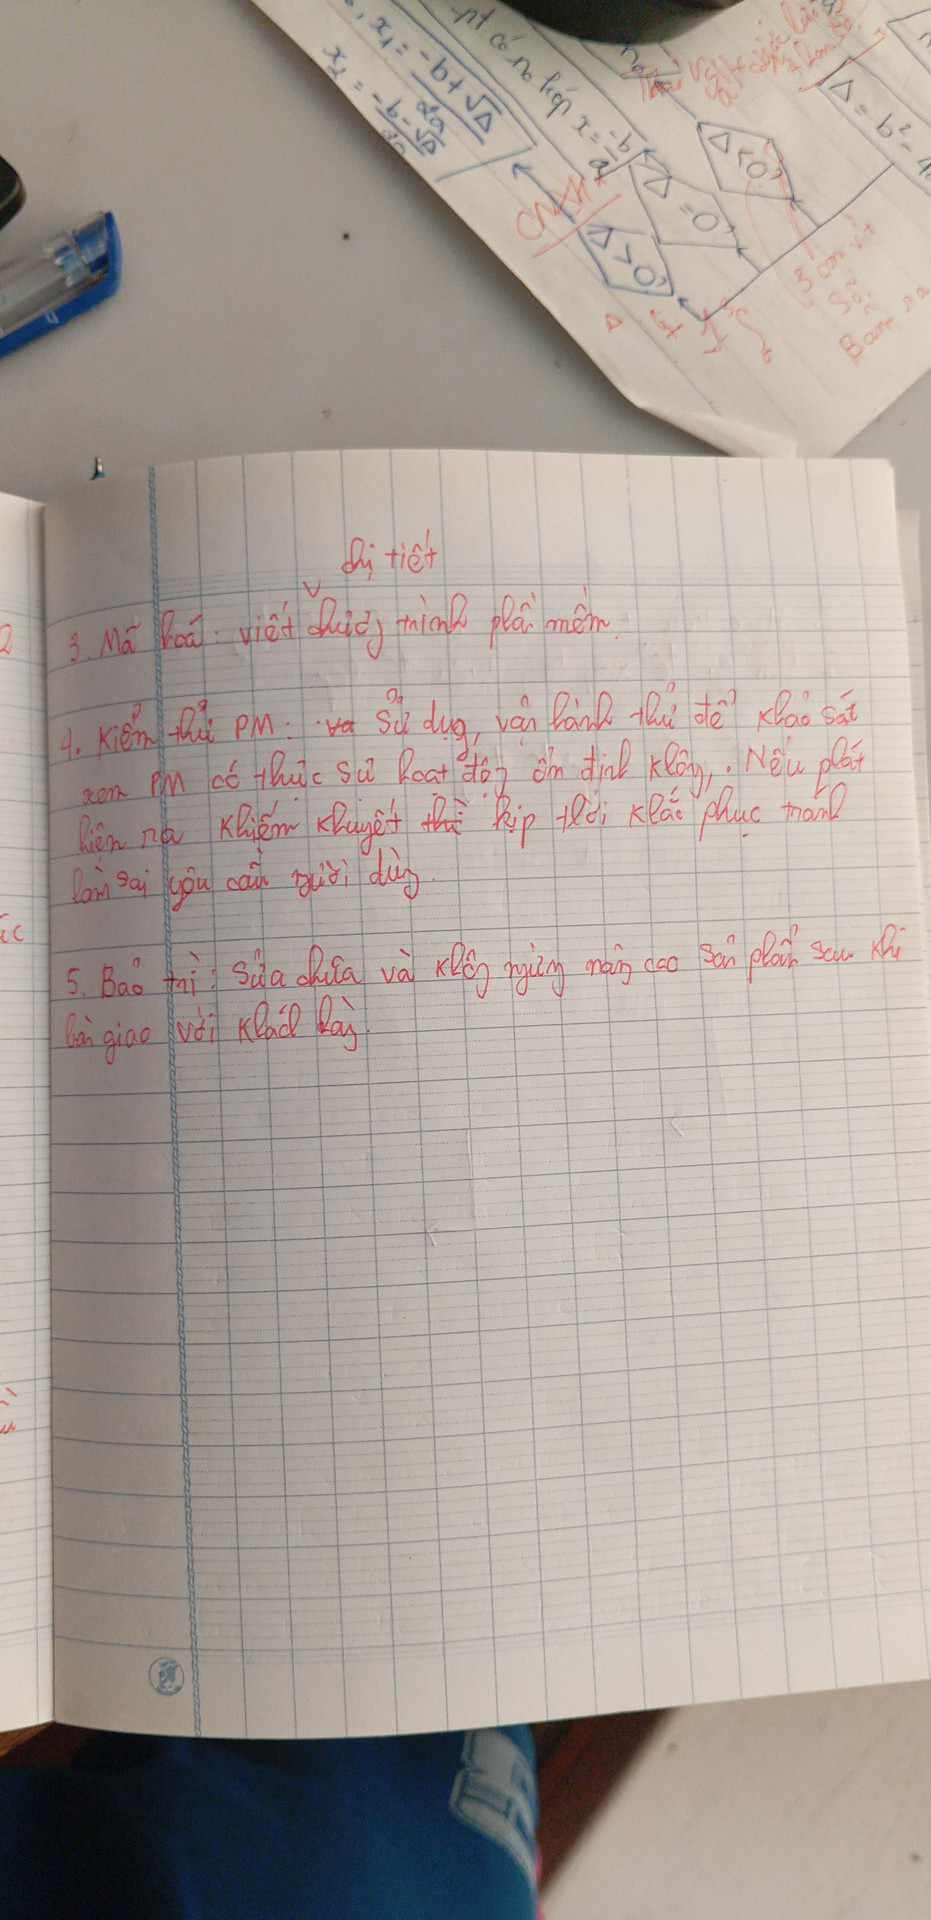 x₁ = -b + √Δ / 2a
x₂ = -b - √Δ / 2a
-pt có no kép x = -b /
Δ = b² - 4
Δ < 0,
Δ = 0,
Δ > 0,
CNXH
3 con vịt
chi tiết
3. Mã hoá: viết chương trình phần mềm.
4. Kiểm thử PM: Sử dụng, vận hành thử để khảo sát
xem PM có thực sự hoạt động ổn định không,. Nếu phát
hiện ra khiếm khuyết thì kịp thời khắc phục tránh
làm sai yêu cầu người dùng.
5. Bảo trì: Sửa chữa và không ngừng nâng cao sản phẩm sau khi
bàn giao với khách hàng.